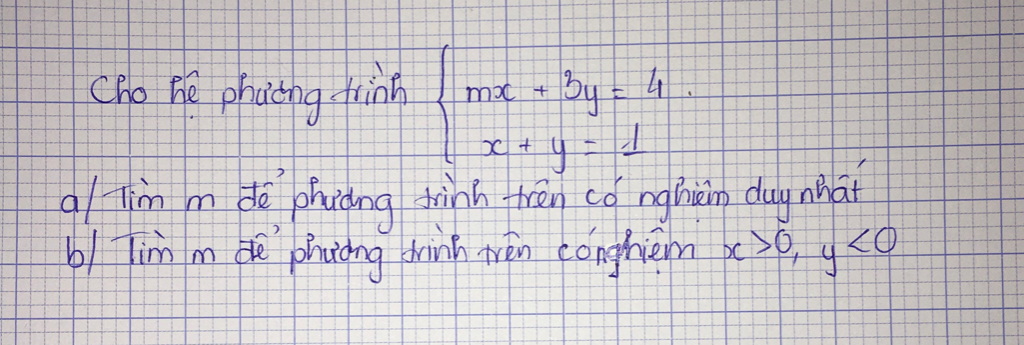 Cho hệ phương trình { mx + 3y = 4.
x + y = 1
a/ Tìm m để phương trình trên có nghiệm duy nhất
b/ Tìm m để phương trình trên có nghiệm x>0, y<0